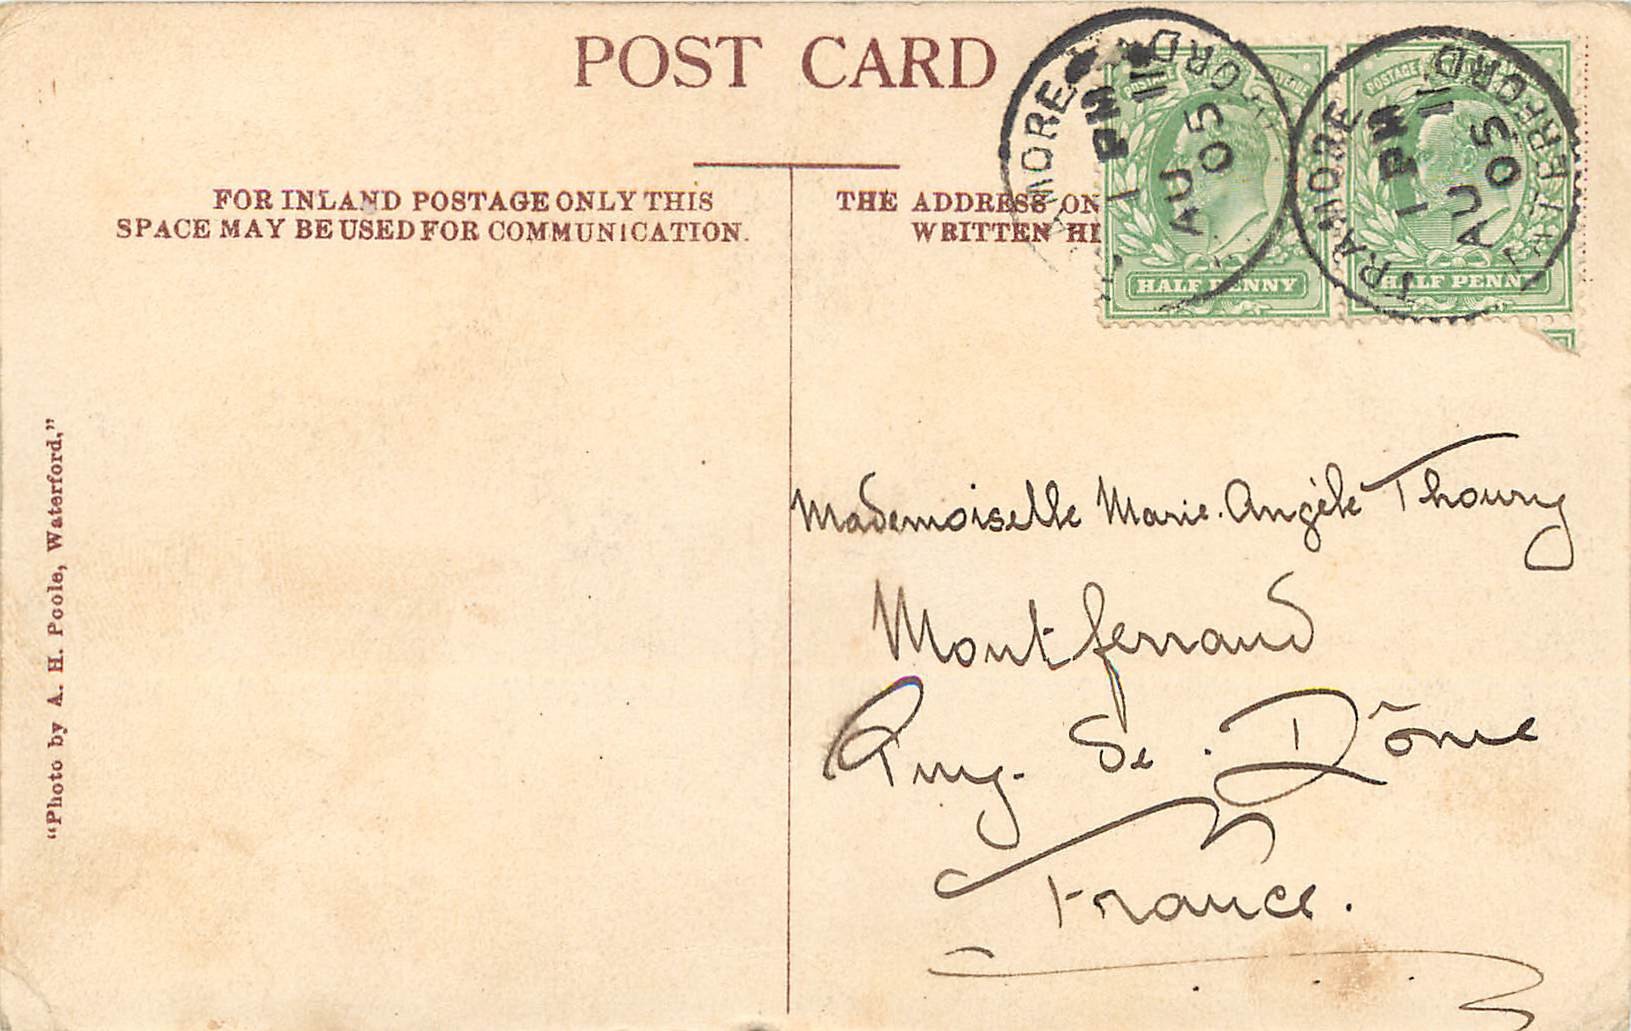 POST CARD
FOR INLAND POSTAGE ONLY THIS
SPACE MAY BE USED FOR COMMUNICATION.
THE ADDRESS ON
WRITTEN HE
TRAMORE WATERFORD
1 PM
AU 11
05
POSTAGE
HALF PENNY
TRAMORE WATERFORD
1 PM
AU 11
05
POSTAGE
HALF PENNY
Mademoiselle Marie-Angèle Thoury
Montferrand
Puy-de-Dôme
France.
"Photo by A. H. Poole, Waterford."